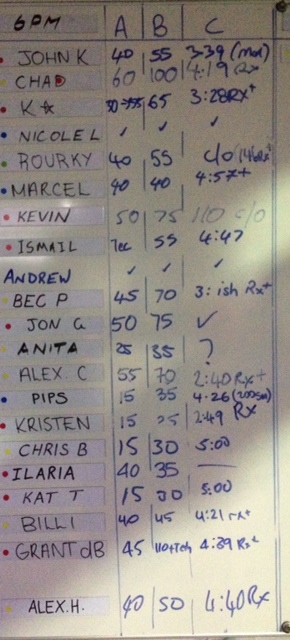 6PM A B C
JOHN K 40 55 3-39 (mod)
CHAD 60 100 4:19 Rx
K☆ 65 3:28 RX+
NICOLE L ✓ ✓ ✓
ROURKY 40 55 c/o
MARCEL 40 40 4:57+
KEVIN 50 75 110 c/o
ISMAIL Tec 55 4:47
ANDREW ✓ ✓ ✓
BEC P 45 70 3: ish Rx+
JON G 50 75 ✓
ANITA 25 35 ?
ALEX C 55 70 2:40 Rx+
PIPS 15 35 4:26 (200sm)
KRISTEN 15 25 2:49 Rx
CHRIS B 15 30 5:00
ILARIA 40 35 —
KAT T 15 30 5:00
BILLI 40 45 4:21 rx+
GRANT dB 45 110+Tch 4:39 Rx+
ALEX.H. 40 50 4:40 Rx